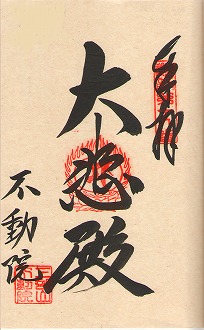 奉拝
大悲殿
不動院